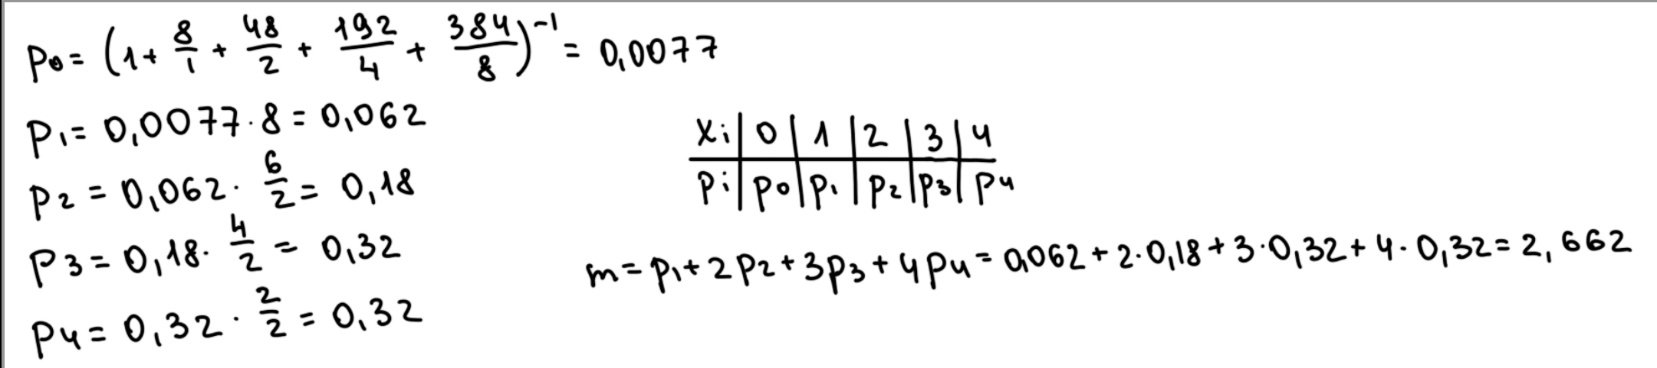 p0 = (1 + 8/1 + 48/2 + 192/4 + 384/8)^-1 = 0,0077
p1 = 0,0077 · 8 = 0,062
p2 = 0,062 · 6/2 = 0,18
p3 = 0,18 · 4/2 = 0,32
p4 = 0,32 · 2/2 = 0,32
xi | 0 | 1 | 2 | 3 | 4
pi | p0 | p1 | p2 | p3 | p4
m = p1 + 2p2 + 3p3 + 4p4 = 0,062 + 2·0,18 + 3·0,32 + 4·0,32 = 2,662